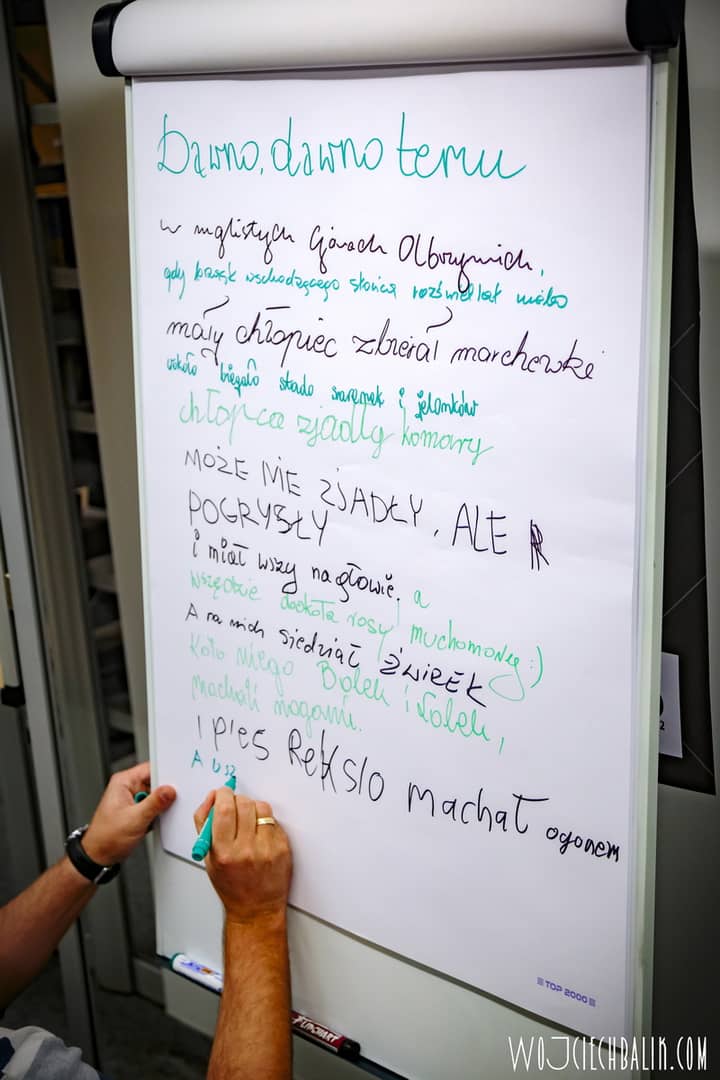 Dawno, dawno temu
w mglistych Górach Olbrzymich,
gdy brzask wschodzącego słońca rozświetlał niebo
mały chłopiec zbierał marchewkę
wokoło biegało stado sarenek i jelonków
chłopca zjadły komary
MOŻE NIE ZJADŁY, ALE
POGRYZŁY
i miał wszy na głowie, a
wszędzie dookoła rosły muchomory :)
A na nich siedział ŻWIREK
Koło niego Bolek i Lolek,
machali nogami.
I PIES Reksio machał ogonem
A
TOP 2000
FLIPCHART
2
WOJCIECHBALIK.COM